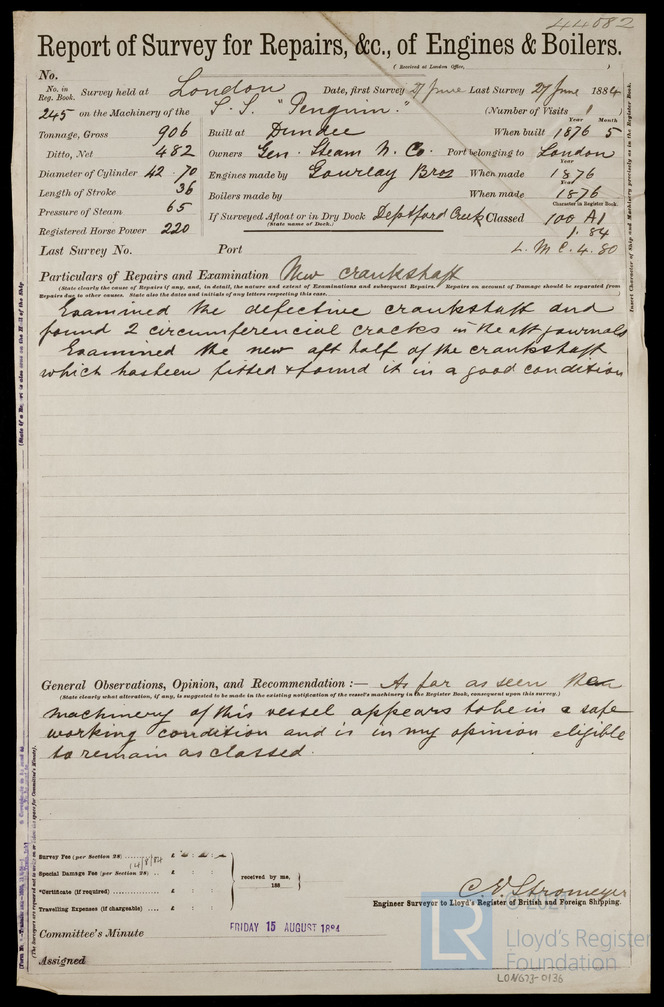 44082
Report of Survey for Repairs, &c., of Engines & Boilers.
(Received at London Office, )
No.
No. in Reg. Book. Survey held at London Date, first Survey 27 June Last Survey 27 June 1884
245 on the Machinery of the S.S. "Penguin." (Number of Visits 1 )
Tonnage, Gross 906 Built at Dundee When built Year 1876 Month 5
Ditto, Net 482 Owners Gen. Steam N. Co. Port belonging to London
Diameter of Cylinder 42 . 70 Engines made by Gourlay Bros When made Year 1876
Length of Stroke 36 Boilers made by When made Year 1876
Pressure of Steam 65 If Surveyed Afloat or in Dry Dock Deptford Creek Classed Character in Register Book. 100 A1
(State name of Dock.)
Registered Horse Power 220 1.84
Last Survey No. Port L.M.C. 4.80
Particulars of Repairs and Examination New crankshaft
(State clearly the cause of Repairs if any, and, in detail, the nature and extent of Examinations and subsequent Repairs. Repairs on account of Damage should be separated from
Repairs due to other causes. State also the dates and initials of any letters respecting this case.)
Examined the defective crankshaft and
found 2 circumferencial cracks in the aft journals
Examined the new aft half of the crankshaft
which has been fitted & found it in a good condition
General Observations, Opinion, and Recommendation :— As far as seen the
(State clearly what alteration, if any, is suggested to be made in the existing notification of the vessel's machinery in the Register Book, consequent upon this survey.)
machinery of this vessel appears to be in a safe
working condition and is in my opinion eligible
to remain as classed.
Survey Fee (per Section 28) £
14/8/84
Special Damage Fee (per Section 28) £ : :
*Certificate (if required) £ : :
Travelling Expenses (if chargeable) £ : :
received by me,
188
C. E. Stromeyer
Engineer Surveyor to Lloyd's Register of British and Foreign Shipping.
Committee's Minute FRIDAY 15 AUGUST 1884
Assigned
Insert Character of Ship and Machinery precisely as in the Register Book.
(The Surveyors are requested not to write on or below the space for Committee's Minute).
LR
© 2021
Lloyd's Register
Foundation
LON673-0136